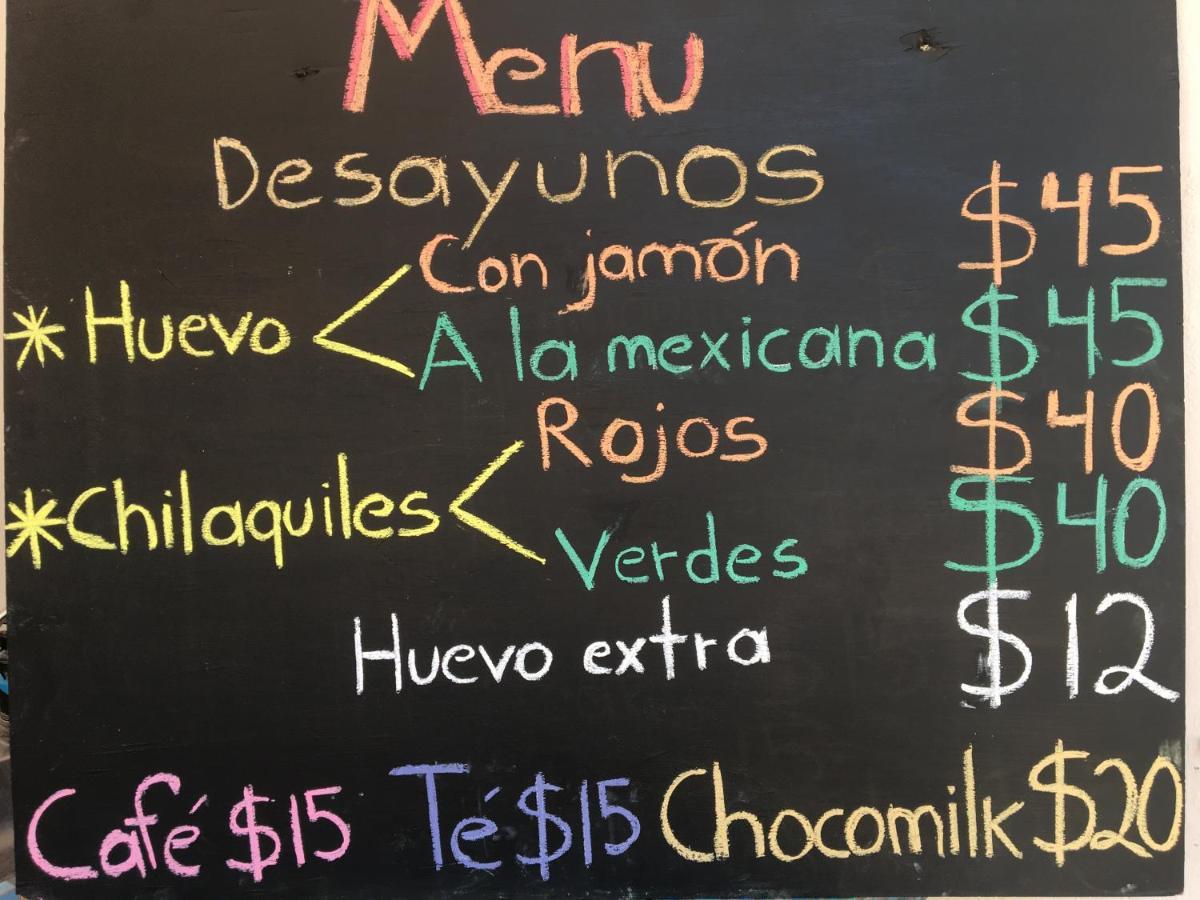 Menu
Desayunos
Con jamón $45
* Huevo < A la mexicana $45
Rojos $40
* Chilaquiles < Verdes $40
Huevo extra $12
Café $15 Té $15 Chocomilk $20